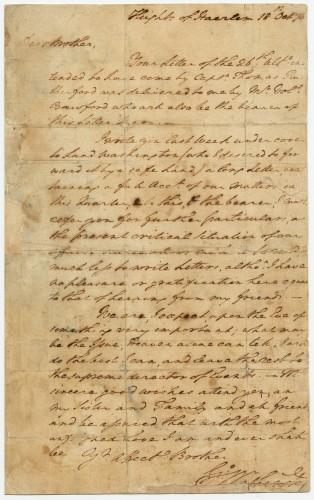 Hights of Haerlem 18th Octr 76
Dear Brother,
Your Letter of the 26th Ulto in
tended to have come by Captn Thomas Ru
therford was delivered to me by Mr Volo
Crawford who
this Letter
I wrote you last Week under cover
to Lund Washington (who I desired to for
ward it by a safe hand) a long Letter con
taining a full Acct of our matters in
this Quarter, to this & the bearer I must
refer you for further particulars, as
the present critical situation of our
much less to write Letters, altho' I have
no pleasure or gratification here equal
to that of hearing from my friends —
We are I expect upon the Eve of
something very important; what may
be the Issue, Heaven alone can tell, I will
do the best I can, and leave the rest to
the supreme director of Events — My
sincere good wishes attend you,
my Sister and Family and all friends
and be assured that with the most
love I am and ever shall
be Yr Affecte Brother
Go Washington